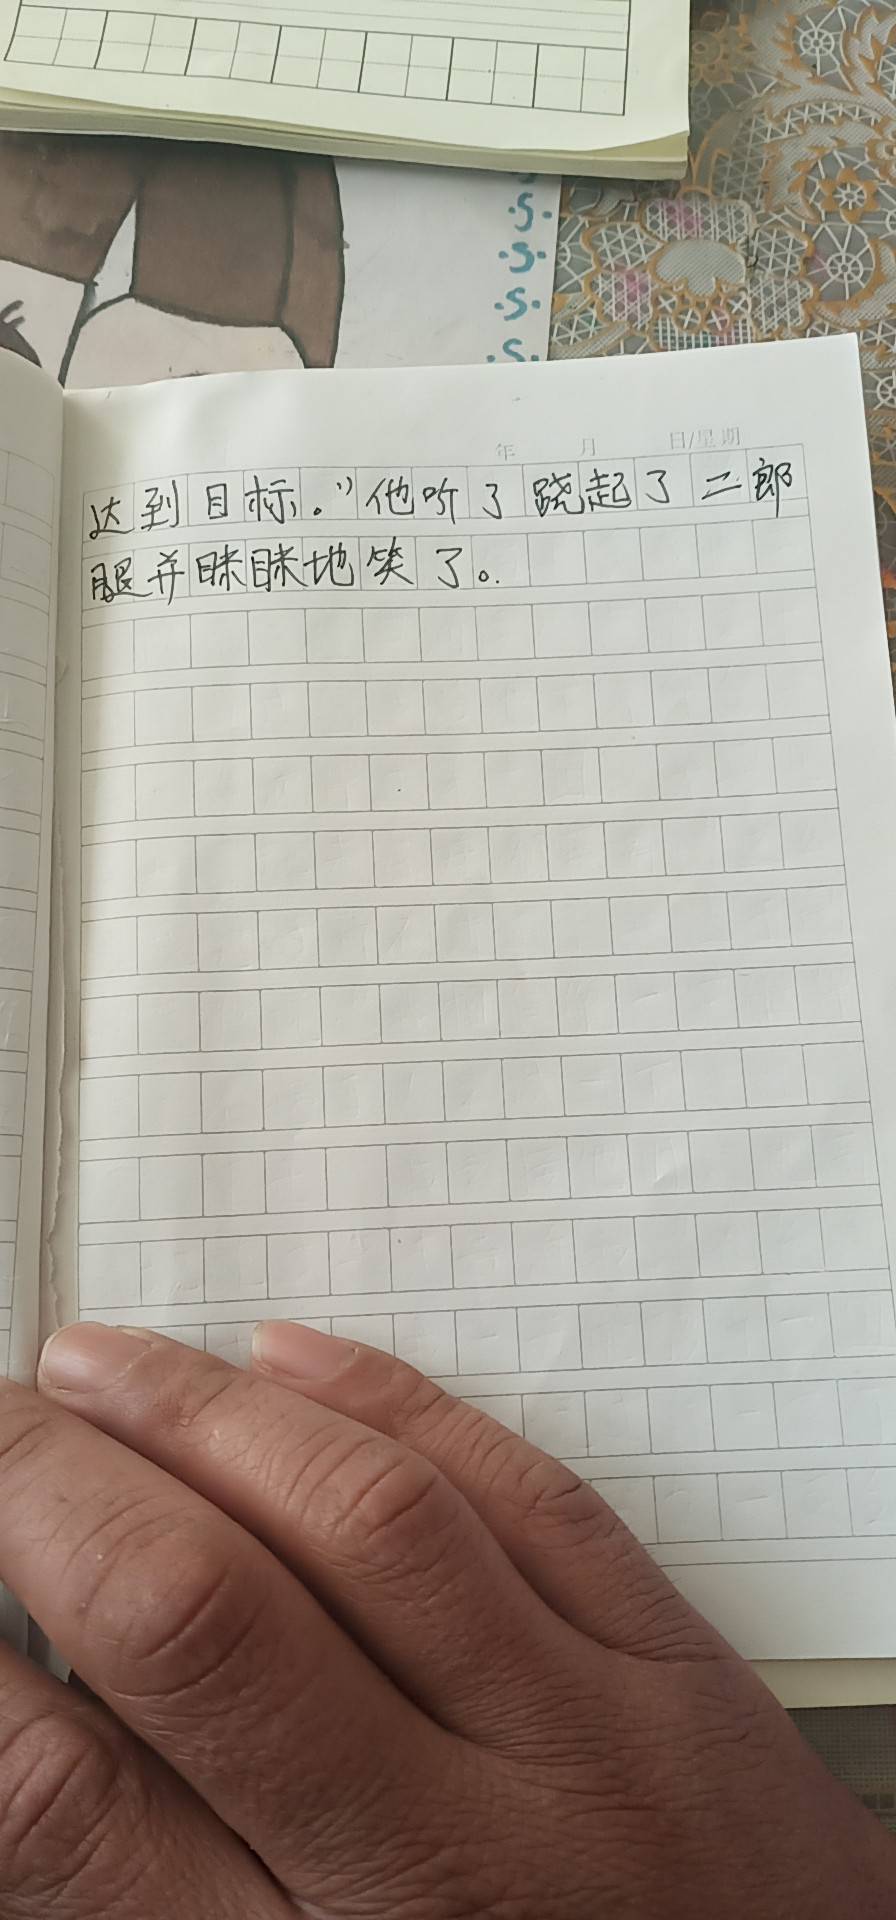 ·S·
·S·
·S·
·S·
年 月 日/星期
达到目标。”他听了跷起了二郎
腿并眯眯地笑了。